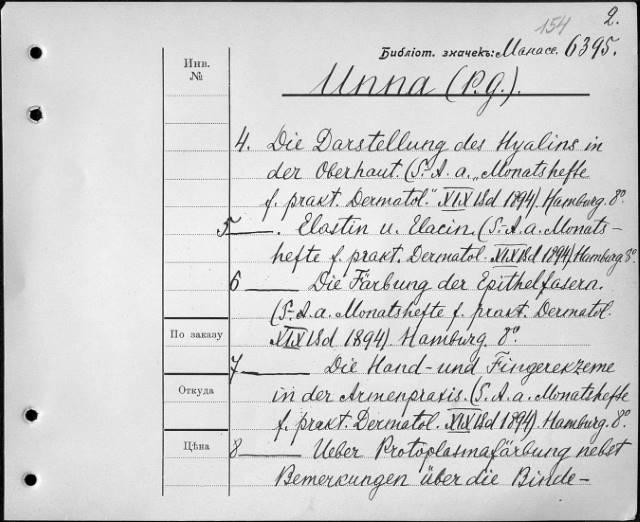 154 2.
Библіот. значекъ: Манасс. 6395.
Инв.
№
Unna (P.g.).
4. Die Darstellung des Hyalins in
der Oberhaut. (S. A. a. „Monatshefte
f. prakt. Dermatol." XIX Bd 1894). Hamburg. 8º
5 ——. Elastin u. Elacin. (S. A. a. Monats-
hefte f. prakt. Dermatol. XIX Bd 1894). Hamburg 8º.
6 —— Die Färbung der Epithelfasern.
(S. A. a. Monatshefte f. prakt. Dermatol.
XIX Bd 1894). Hamburg. 8º
По заказу
7 —— Die Hand- und Fingerekzeme
in der Armenpraxis. (S. A. a. Monatshefte
Откуда
f. prakt. Dermatol. XIX Bd 1894). Hamburg. 8º
Цѣна
8 —— Ueber Protoplasmafärbung nebst
Bemerkungen über die Binde-